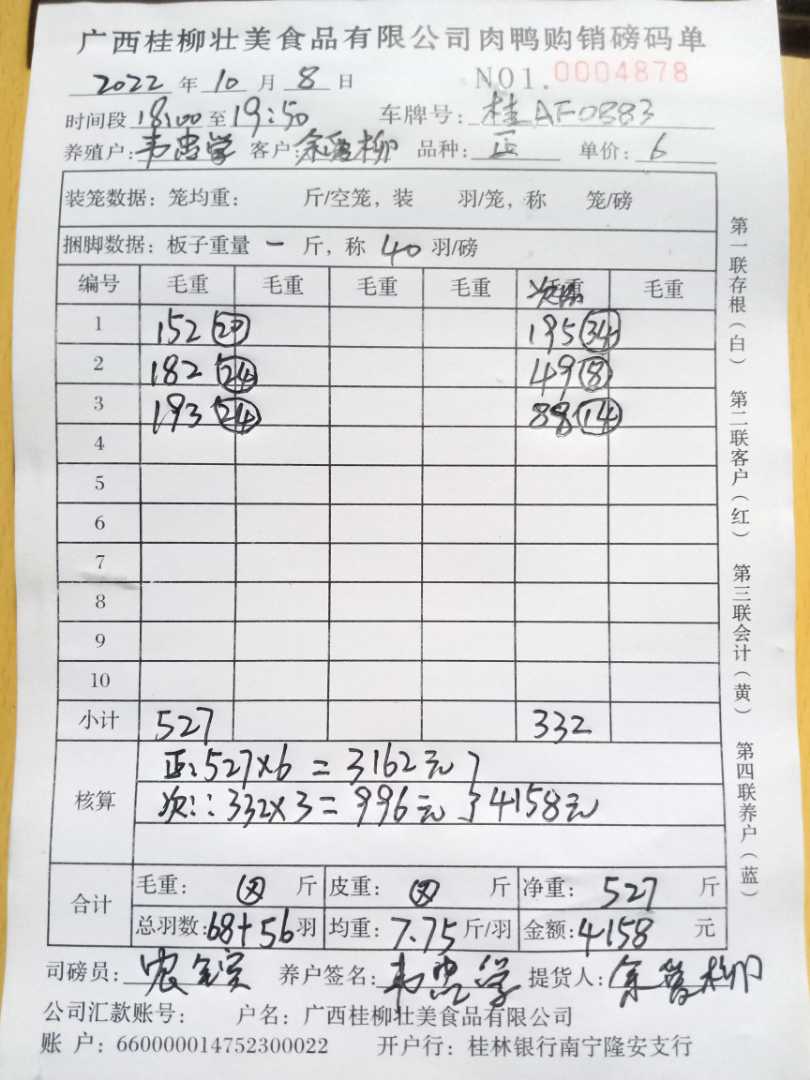 广西桂柳壮美食品有限公司肉鸭购销磅码单
2022 年 10 月 8 日 NO1.0004878
时间段 18:00 至 19:50 车牌号: 桂AF0883
养殖户: 韦忠学 客户: 余 柳 品种: 正 单价: 6
装笼数据: 笼均重: 斤/空笼, 装 羽/笼, 称 笼/磅
捆脚数据: 板子重量 一 斤, 称 40 羽/磅
编号 毛重 毛重 毛重 毛重 毛重
1 152 20 195 34
2 182 24 49 8
3 193 24 88 14
4
5
6
7
8
9
10
小计 527 332
核算 正: 527×6 = 3162元
次: 332×3 = 996元 } 4158元
合计 毛重: 斤 皮重: 斤 净重: 527 斤
总羽数: 68+56 羽 均重: 7.75 斤/羽 金额: 4158 元
司磅员: 养户签名: 韦忠学 提货人: 余 柳
公司汇款账号: 户名: 广西桂柳壮美食品有限公司
账 户: 660000014752300022 开户行: 桂林银行南宁隆安支行
第一联存根(白) 第二联客户(红) 第三联会计(黄) 第四联养户(蓝)